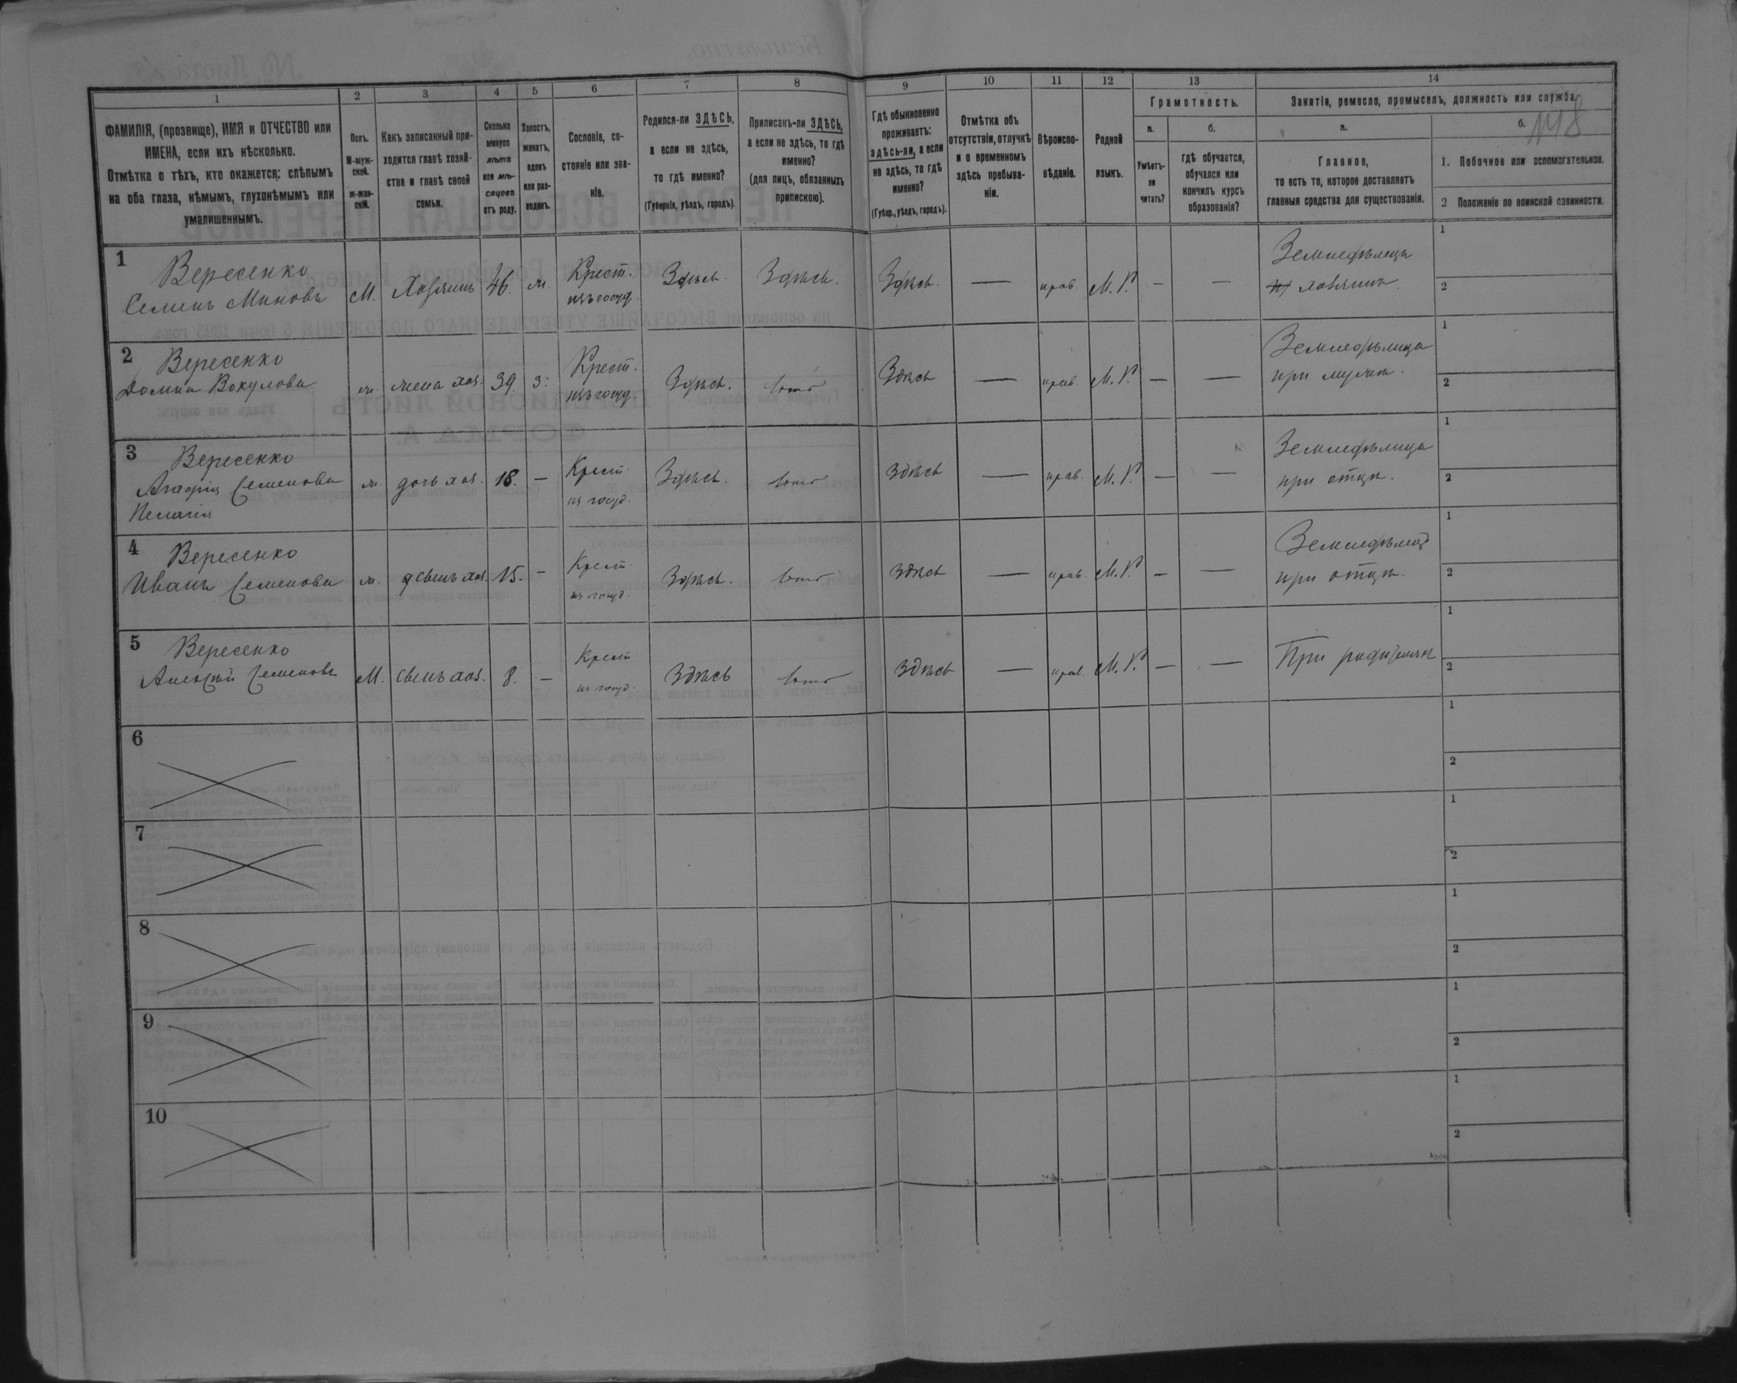 148
1
2
3
4
5
6
7
8
9
10
11
12
13
14
ФАМИЛІЯ, (прозвище), ИМЯ и ОТЧЕСТВО или
ИМЕНА, если ихъ нѣсколько.
Отмѣтка о тѣхъ, кто окажется: слѣпымъ
на оба глаза, нѣмымъ, глухонѣмымъ или
умалишеннымъ.
Полъ.
М-муж-
ской.
ж-жен-
скій.
Какъ записанный при-
ходится главѣ хозяй-
ства и главѣ своей
семьи.
Сколько
минуло
лѣтъ
или мѣ-
сяцевъ
отъ роду.
Холостъ,
женатъ,
вдовъ
или раз-
веденъ.
Сословіе, со-
стояніе или зва-
ніе.
Родился-ли ЗДѢСЬ,
а если не здѣсь,
то гдѣ именно?
(Губернія, уѣздъ, городъ).
Приписанъ-ли ЗДѢСЬ,
а если не здѣсь, то гдѣ
именно?
(для лицъ, обязанныхъ
припискою).
Гдѣ обыкновенно
проживаетъ:
здѣсь-ли, а если
не здѣсь, то гдѣ
именно?
(Губер., уѣздъ, городъ).
Отмѣтка объ
отсутствіи, отлучкѣ
и о временномъ
здѣсь пребыва-
ніи.
Вѣроиспо-
вѣданіе.
Родной
языкъ.
Грамотность.
а.
Умѣетъ-
ли
читать?
б.
гдѣ обучается,
обучался или
кончилъ курсъ
образованія?
Занятія, ремесло, промыселъ, должность или служба.
а.
Главное,
то есть то, которое доставляетъ
главныя средства для существованія.
б.
1. Побочное или вспомогательное.
2 Положеніе по воинской повинности.
1
Вересенко
Семенъ Миновъ
М. Хозяинъ 46. ж.
Крест.
изъ госуд.
Здѣсь. Здѣсь. Здѣсь. — прав. М. Р. — —
Земледѣлецъ
хозяинъ.
1
2
2
Вересенко
Домна Вакулова
ж. жена хоз. 39 з.
Крест.
изъ госуд.
Здѣсь. тоже Здѣсь — прав. М. Р. — —
Земледѣлица
при мужѣ.
1
2
3
Вересенко
Семенова
Пелагія
ж. дочь хоз. 18. —
Крест.
из госуд.
Здѣсь. тоже здѣсь — прав. М. Р. — —
Земледѣлица
при отцѣ.
1
2
4
Вересенко
Иванъ Семеновъ
м. сынъ хоз. 15. —
Крест.
из госуд.
Здѣсь. тоже здѣсь — прав. М. Р. — —
при отцѣ.
1
2
5
Вересенко
Алексѣй Семеновъ
М. сынъ хоз. 8. —
Крест
из госуд.
Здѣсь тоже здѣсь — прав. М. Р. — —
При родителяхъ
1
2
6
1
2
7
1
2
8
1
2
9
1
2
10
1
2